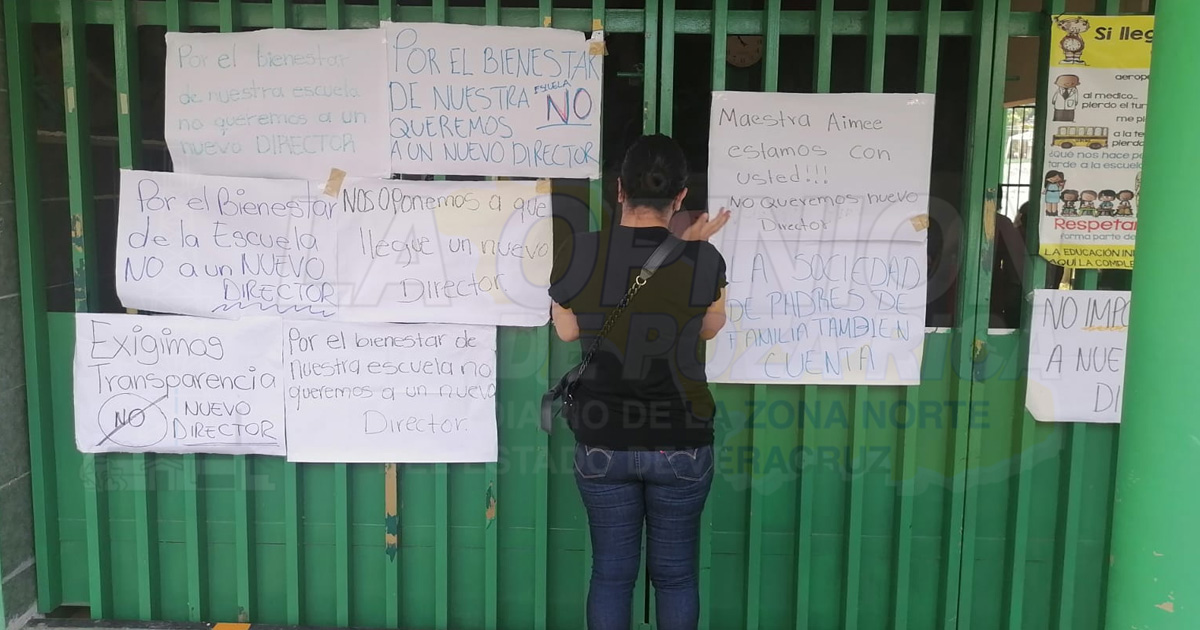 Por el bienestar
de nuestra escuela
no queremos a un
nuevo DIRECTOR
POR EL BIENESTAR
DE NUESTRA ESCUELA NO
QUEREMOS
A UN NUEVO DIRECTOR
Por el Bienestar
de la Escuela
NO a un NUEVO
DIRECTOR
NOS OPonemos a que
llegue un nuevo
Director.
Exigimos
Transparencia
NO NUEVO
DIRECTOR
Por el bienestar de
nuestra escuela no
queremos a un nuevo
Director.
Maestra Aimee
estamos con
usted!!!
NO Queremos nuevo
Director
LA SOCIEDAD
DE PADRES DE
FAMILIA TAMBIEN
CUENTA
Si lleg
aerop
al medico...
pierdo el tur
me pi
a la te
pierdo
¿Qué nos hace pe
tarde a la escuela
Respetar
forma parte de
LA EDUCACIÓN IN
AQUÍ LA COMPLE
NO IMPO
A NUE
DI
LA OPINIÓN
DE POZA RICA
DIARIO DE LA ZONA NORTE
DEL ESTADO DE VERACRUZ